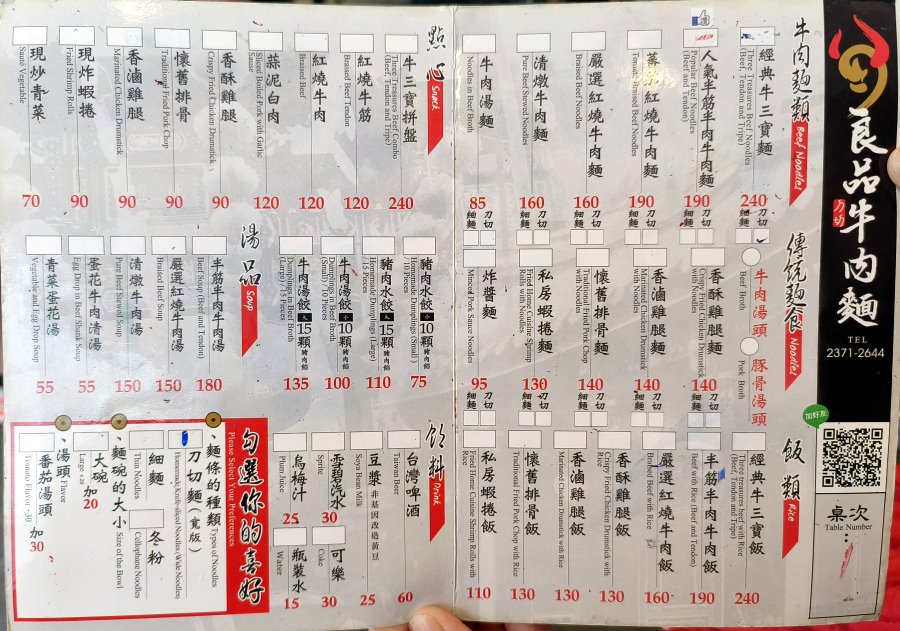 良品牛肉麵
刀切
TEL
2371-2644
加好友
桌次：
Table Number
牛肉麵類
Beef Noodles
經典牛三寶麵
Three Treasures Beef Noodles
(Beef, Tendon and Tripe)
240
刀切
細麵
人氣半筋半肉牛肉麵
Popular Beef Noodles
(Beef and Tendon)
190
刀切
細麵
紅燒牛肉麵
Tomato Braised Beef Noodles
190
刀切
細麵
嚴選紅燒牛肉麵
Braised Beef Noodles
160
刀切
細麵
清燉牛肉麵
Pure Beef Stewed Noodles
160
刀切
細麵
牛肉湯麵
Noodles in Beef Broth
85
刀切
細麵
傳統麵食
Noodles
牛肉湯頭
Beef Broth
豚骨湯頭
Pork Broth
香酥雞腿麵
Crispy Fried Chicken Drumstick
with Noodles
140
刀切
細麵
香滷雞腿麵
Marinated Chicken Drumstick
with Noodles
140
刀切
細麵
懷舊排骨麵
Traditional Fried Pork Chop
with Noodles
140
刀切
細麵
私房蝦捲麵
Fried Home Cuisine Shrimp
Rolls with Noodles
130
刀切
細麵
炸醬麵
Minced Pork Sauce Noodles
95
刀切
細麵
飯類
Rice
經典牛三寶飯
Three treasures beef with Rice
(Beef, Tendon and Tripe)
240
半筋半肉牛肉飯
Beef with Rice (Beef and Tendon)
190
嚴選紅燒牛肉飯
Braised Beef with Rice
160
香酥雞腿飯
Crispy Fried Chicken Drumstick with
Rice
130
香滷雞腿飯
Marinated Chicken Drumstick with Rice
130
懷舊排骨飯
Traditional Fried Pork Chop with Rice
130
私房蝦捲飯
Fried Home Cuisine Shrimp Rolls with
Rice
110
點心
Snack
牛三寶拼盤
Three Treasures Beef Combo
(Beef, Tendon and Tripe)
240
紅燒牛筋
Braised Beef Tendon
120
紅燒牛肉
Braised Beef
120
蒜泥白肉
Sliced Boiled Pork with Garlic
Sauce
120
香酥雞腿
Crispy Fried Chicken Drumstick
90
懷舊排骨
Traditional Fried Pork Chop
90
香滷雞腿
Marinated Chicken Drumstick
90
現炸蝦捲
Fried Shrimp Rolls
90
現炒青菜
Sauté Vegetable
70
豬肉水餃 小 10顆 豬肉餡
Homemade Dumplings (Small)
/10 Pieces
75
豬肉水餃 大 15顆
Homemade Dumplings (Large)
/15 Pieces
110
牛肉湯餃 小 10顆 豬肉餡
Dumplings in Beef Broth
(Small) /10 Pieces
100
牛肉湯餃 大 15顆 豬肉餡
Dumplings in Beef Broth
(Large) /15 Pieces
135
湯品
Soup
半筋半肉牛肉湯
Beef Soup (Beef and Tendon)
180
嚴選紅燒牛肉湯
Braised Beef Soup
150
清燉牛肉湯
Pure Beef Stewed Soup
150
蛋花牛肉清湯
Egg Drop in Beef Shank Soup
55
青菜蛋花湯
Vegetable and Egg Drop Soup
55
飲料
Drink
台灣啤酒
Taiwan Beer
60
豆漿 非基因改造黃豆
Soya Bean Milk
25
雪碧汽水
Sprite
30
可樂
Coke
30
烏梅汁
Plum Juice
25
瓶裝水
Water
15
勾選你的喜好
Please Select Your Preferences
、麵條的種類
Types of Noodles
刀切麵（寬版）
Homemade Knife-sliced Noodles (Wide Noodles)
細麵
Thin Noodles
冬粉
Cellophane Noodles
、麵碗的大小
Size of the Bowl
大碗 加20
Large +20
、湯頭
Soup Flavor
番茄湯頭 加30
Tomato Flavor +30